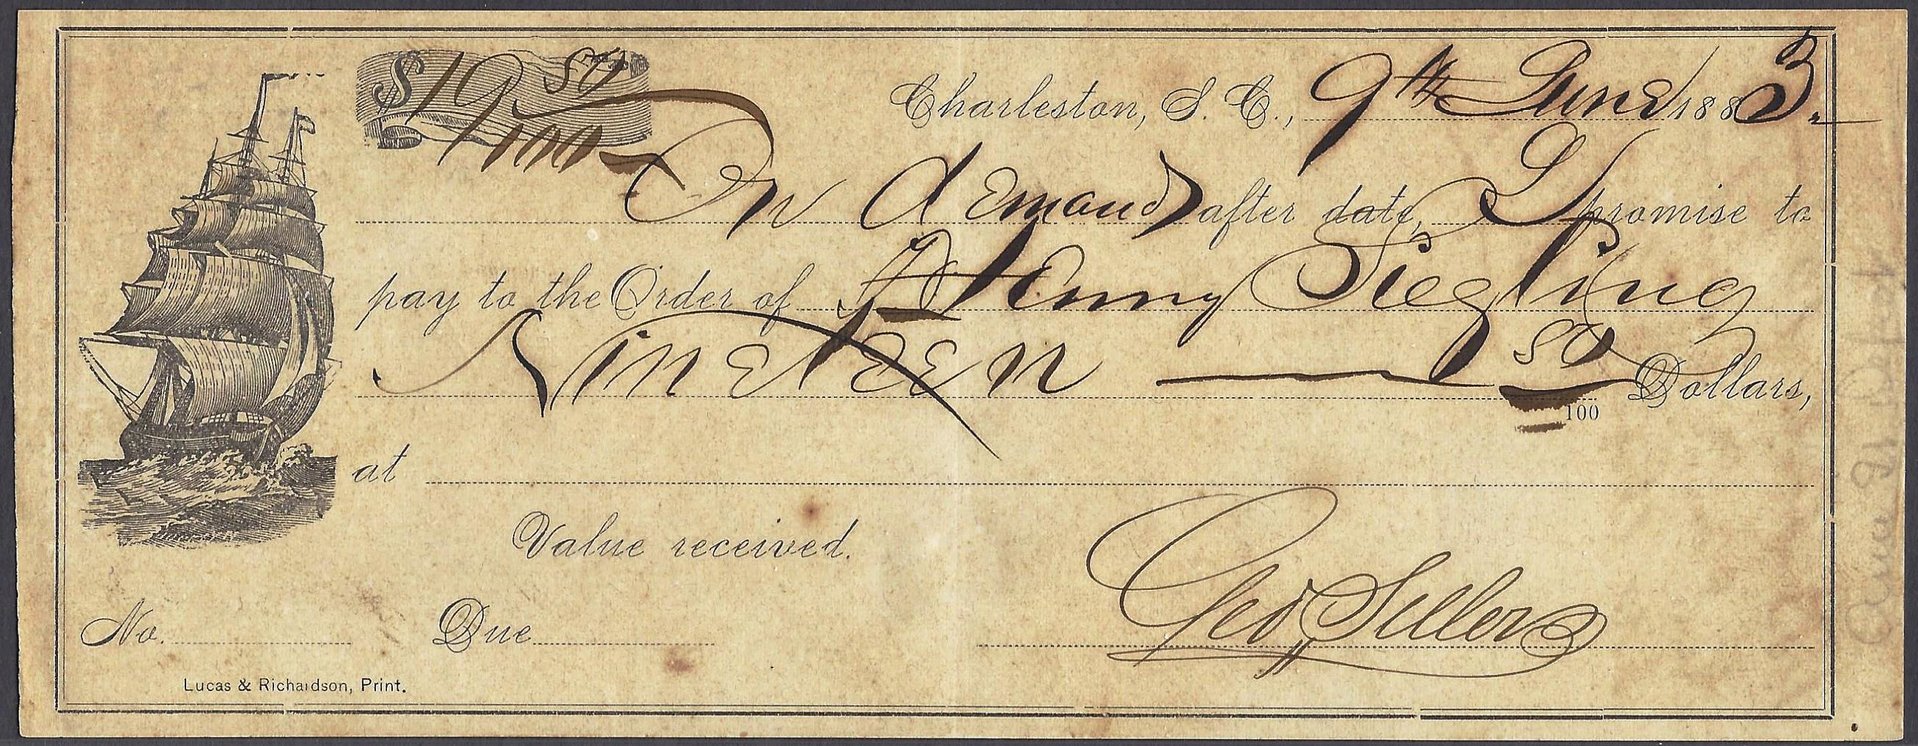 $19 50/100
Charleston, S. C., 9th June 1883.
On demand after date, I promise to
pay to the Order of Henry Siegling
Nineteen 50/100 Dollars,
at
Value received.
No. Due Geo Sellers
Lucas & Richardson, Print.